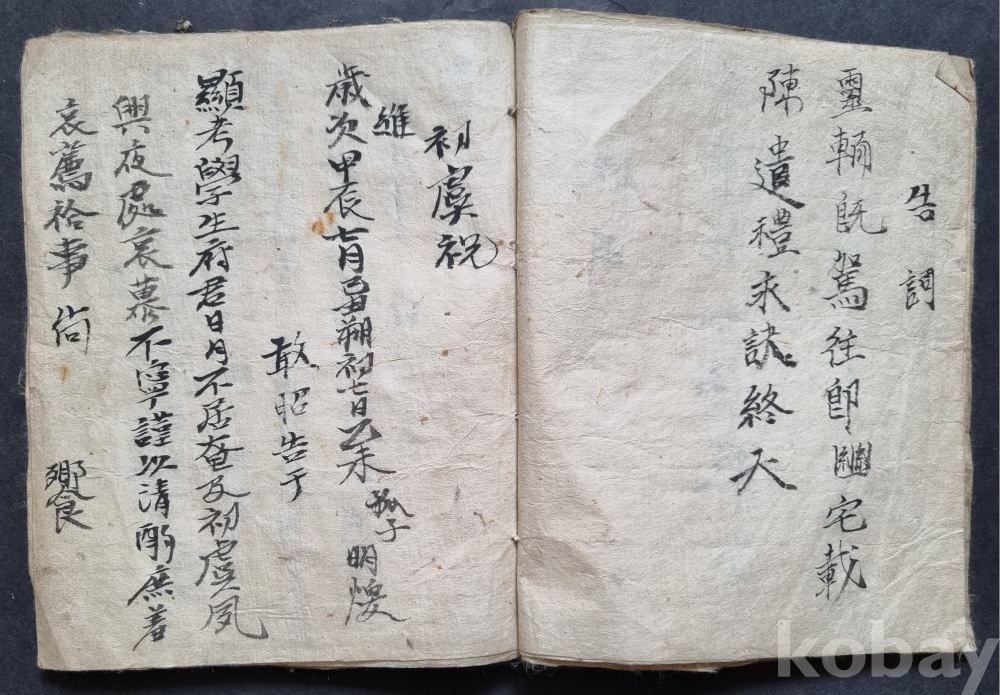 告詞
靈輀旣駕往卽幽宅載
陳遣禮永訣終天
初虞祝
維
歲次甲辰七月己丑朔初七日乙未 孤子 明煥
敢昭告于
顯考學生府君日月不居奄及初虞夙
興夜處哀慕不寧謹以清酌庶羞
哀薦祫事尙 饗
kobay